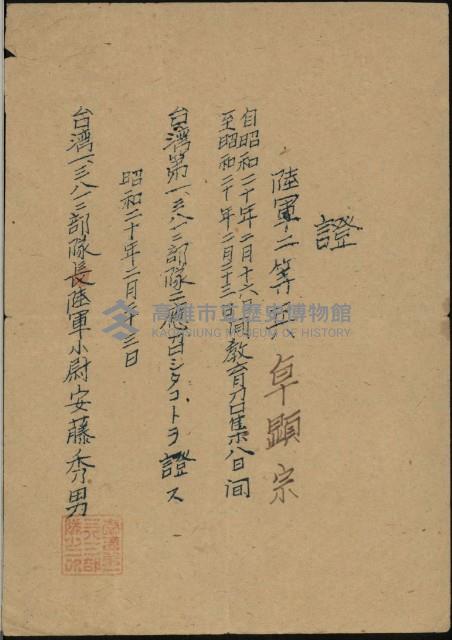 證
陸軍二等兵 卓顯宗
自昭和二十年二月十六日
至昭和二十年二月二十三日間教育召集八日間
台湾第一三八一三部隊ニ應召シタコトヲ證ス
昭和二十年二月二十三日
台湾一三八一三部隊長陸軍少尉安藤秀男
高雄市立歷史博物館
KAOHSIUNG MUSEUM OF HISTORY